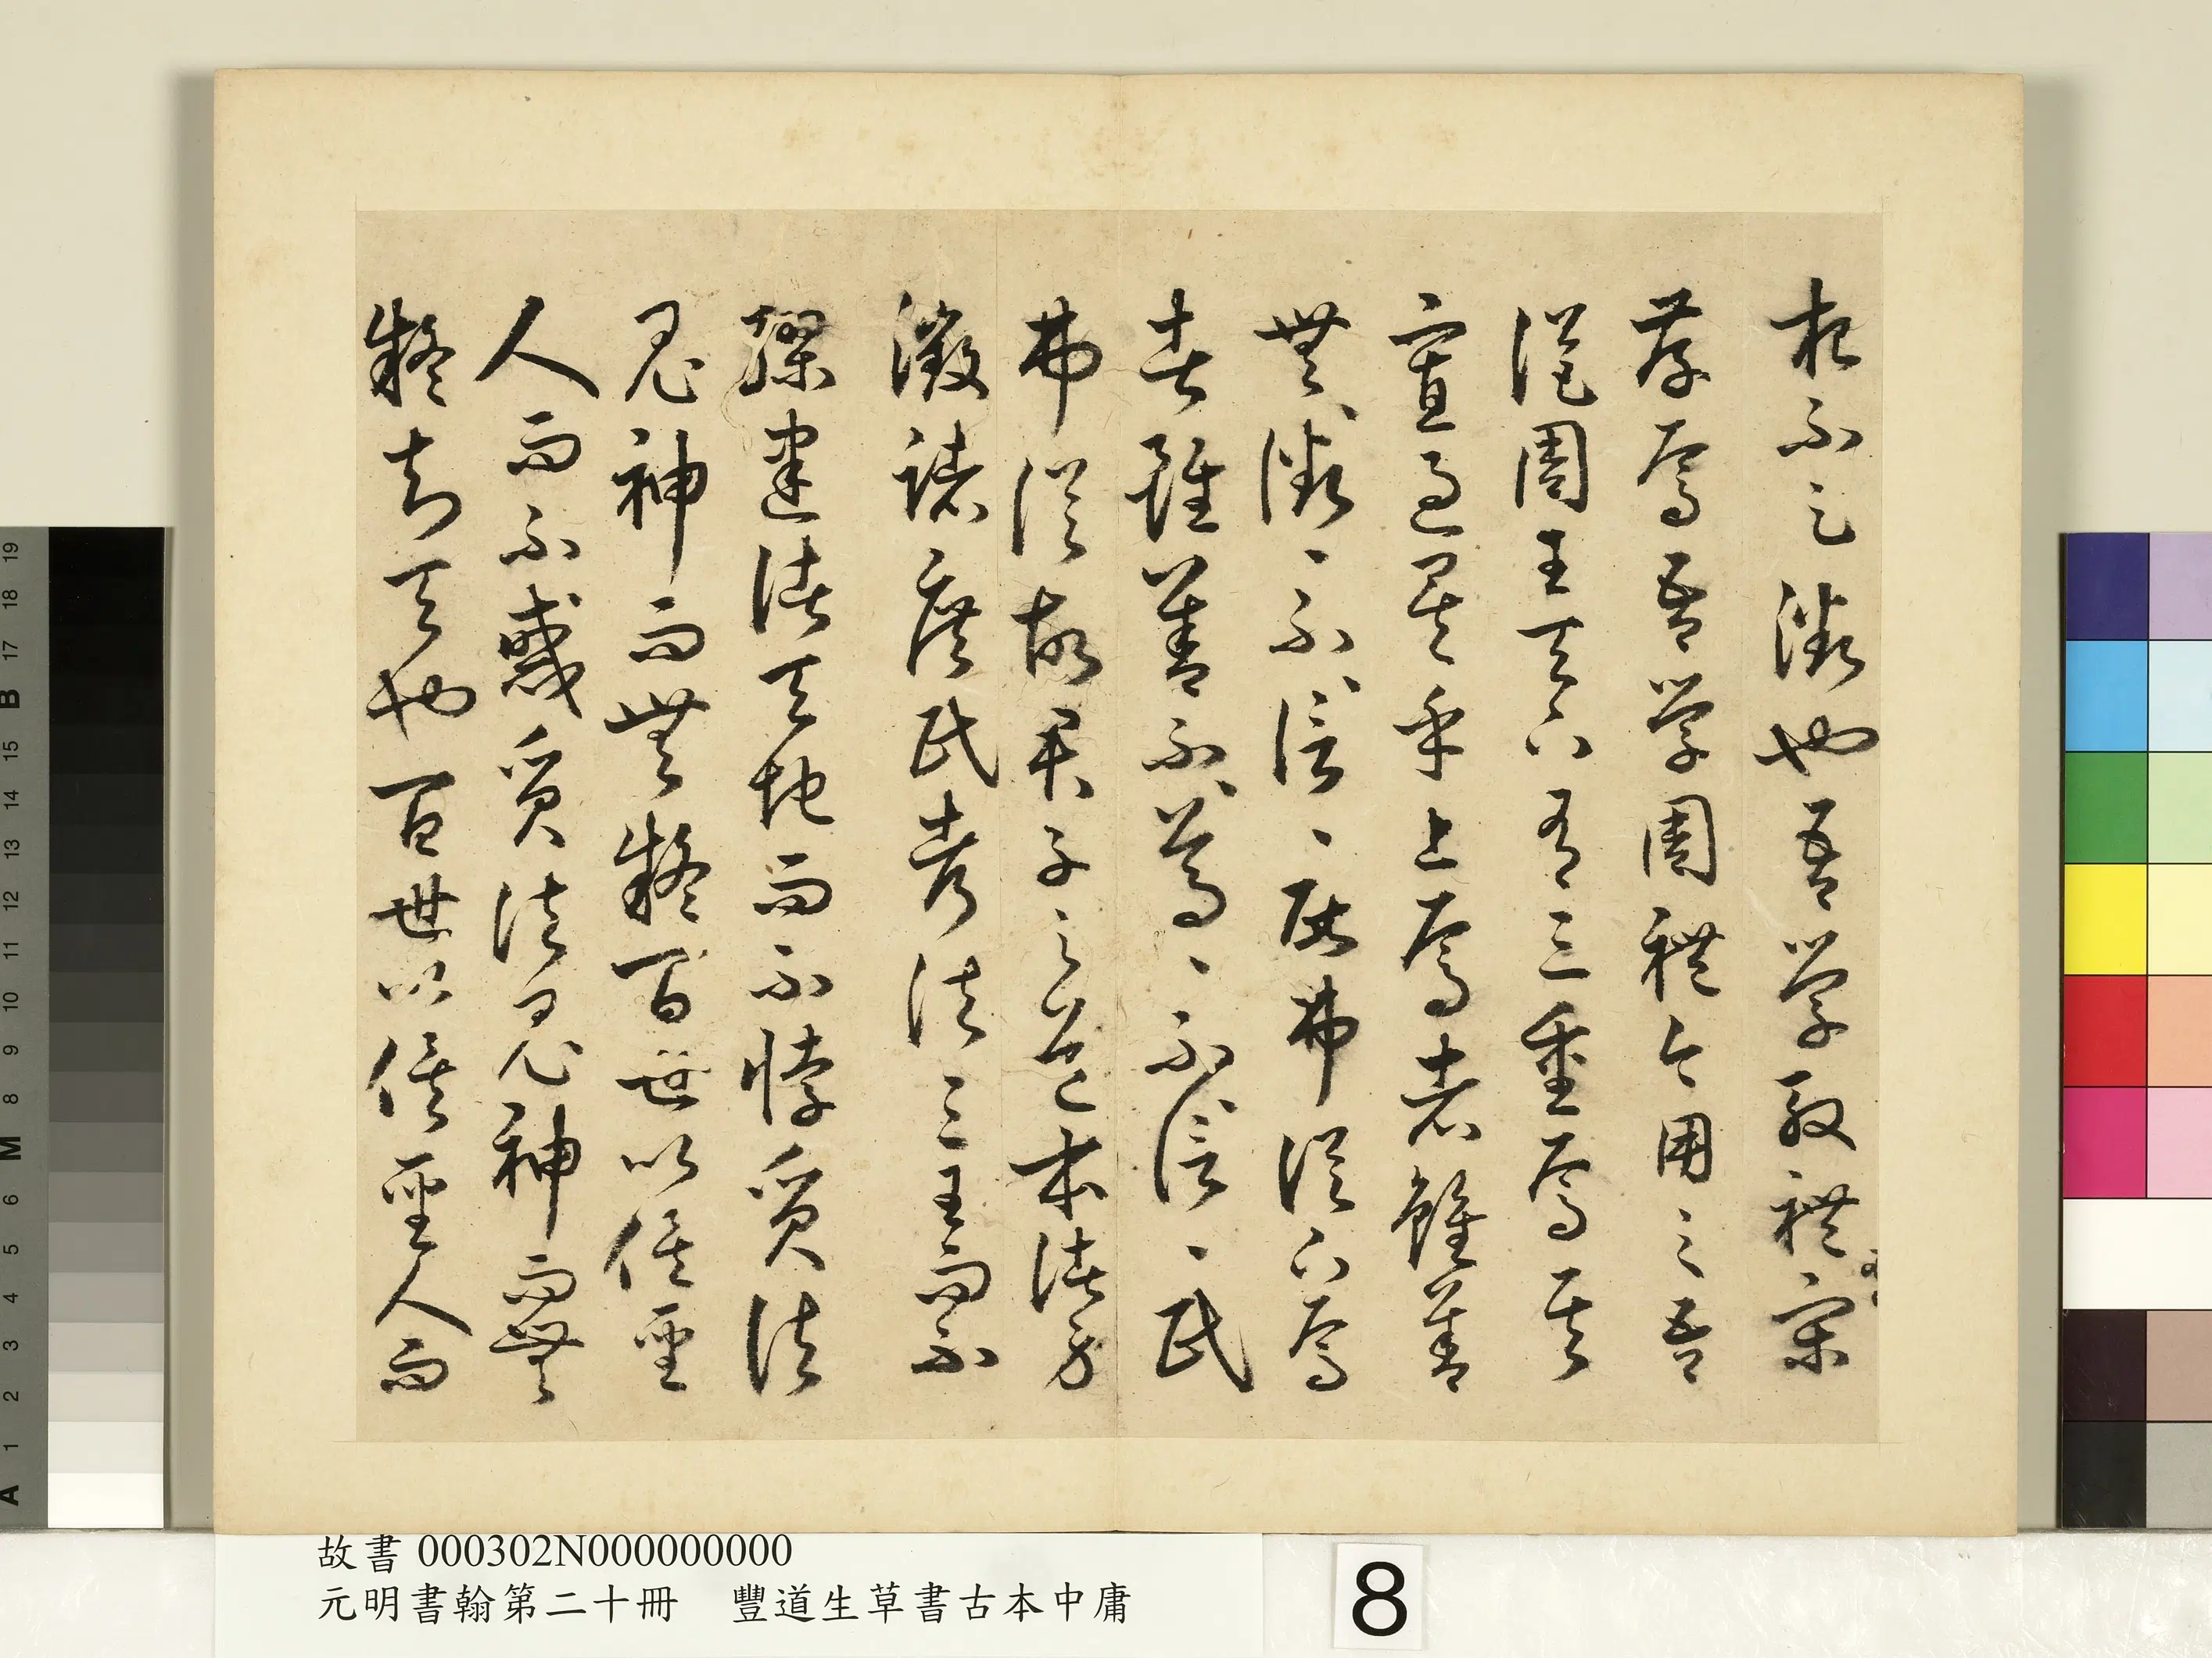 杞不足徵也吾學殷禮宋
存焉吾學周禮今用之吾
從周王天下有三重焉其
寡過矣乎上焉者雖善
無徵、不信、民弗從下焉
者雖善不尊、不信、民
弗從故君子之道本諸身
徵諸庶民考諸三王而不
繆建諸天地而不悖質諸
鬼神而無疑百世以俟聖
人而不惑質諸鬼神而無
疑知天也百世以俟聖人而
故書 000302N000000000
元明書翰第二十冊 豐道生草書古本中庸
8
A 1 2 3 4 5 6 M 8 9 10 11 12 13 14 15 B 17 18 19